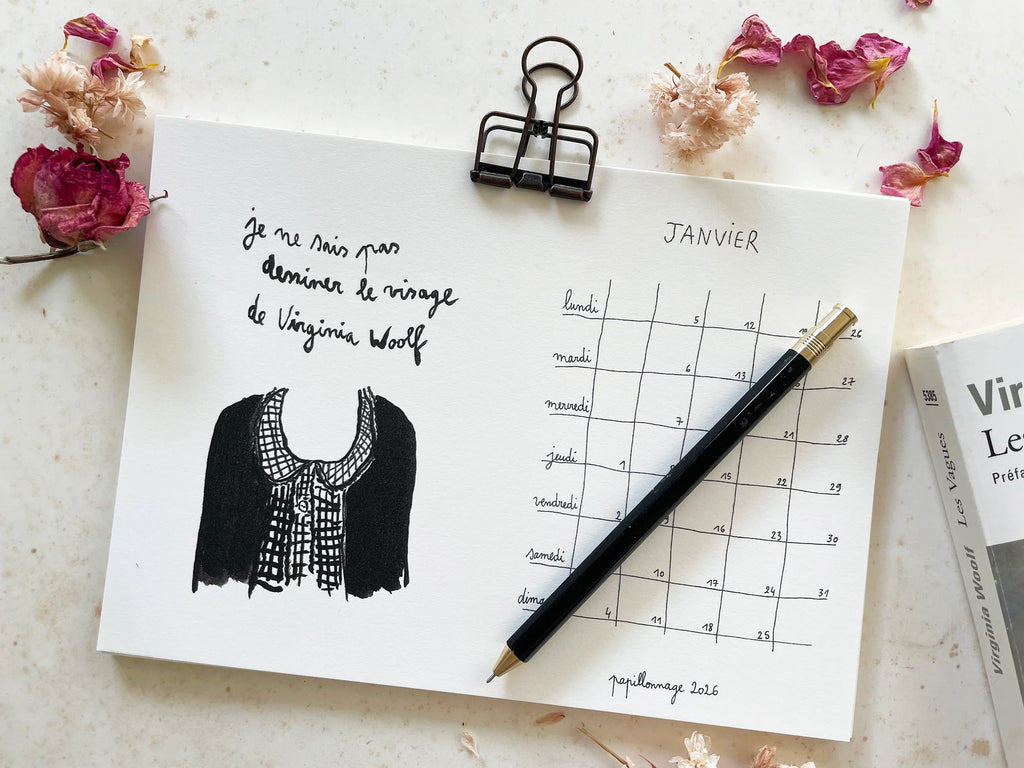 je ne sais pas
dessiner le visage
de Virginia Woolf
JANVIER
lundi 5 12 26
mardi 6 13 27
mercredi 7 21 28
jeudi 1 15 22 29
vendredi 2 16 23 30
samedi 10 17 24 31
dima 4 11 18 25
papillonnage 2026
5385
Les Vagues
Virginia Woolf
Vir
Le
Préfa